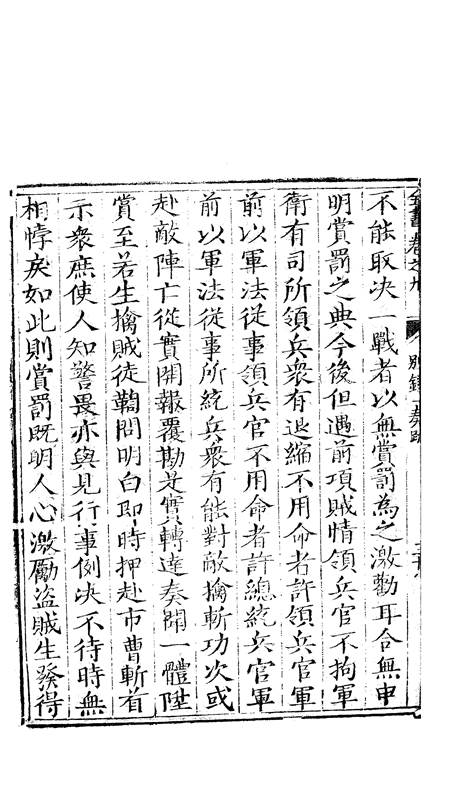 全書卷之九 別錄一 奏疏
不能取决一戰者以無賞罰為之激勸耳合無申
明賞罰之典今後但遇前項賊情領兵官不拘軍
衛有司所領兵衆有退縮不用命者許領兵官軍
前以軍法從事領兵官不用命者許總統兵官軍
前以軍法從事所統兵衆有能對敵擒斬功次或
赴敵陣亡從實開報覆勘是實轉達奏聞一體陞
賞至若生擒賊徒鞫問明白即時押赴市曹斬首
示衆庶使人知警畏亦與見行事例决不待時無
相悖戾如此則賞罰既明人心激勵盜賊生發得